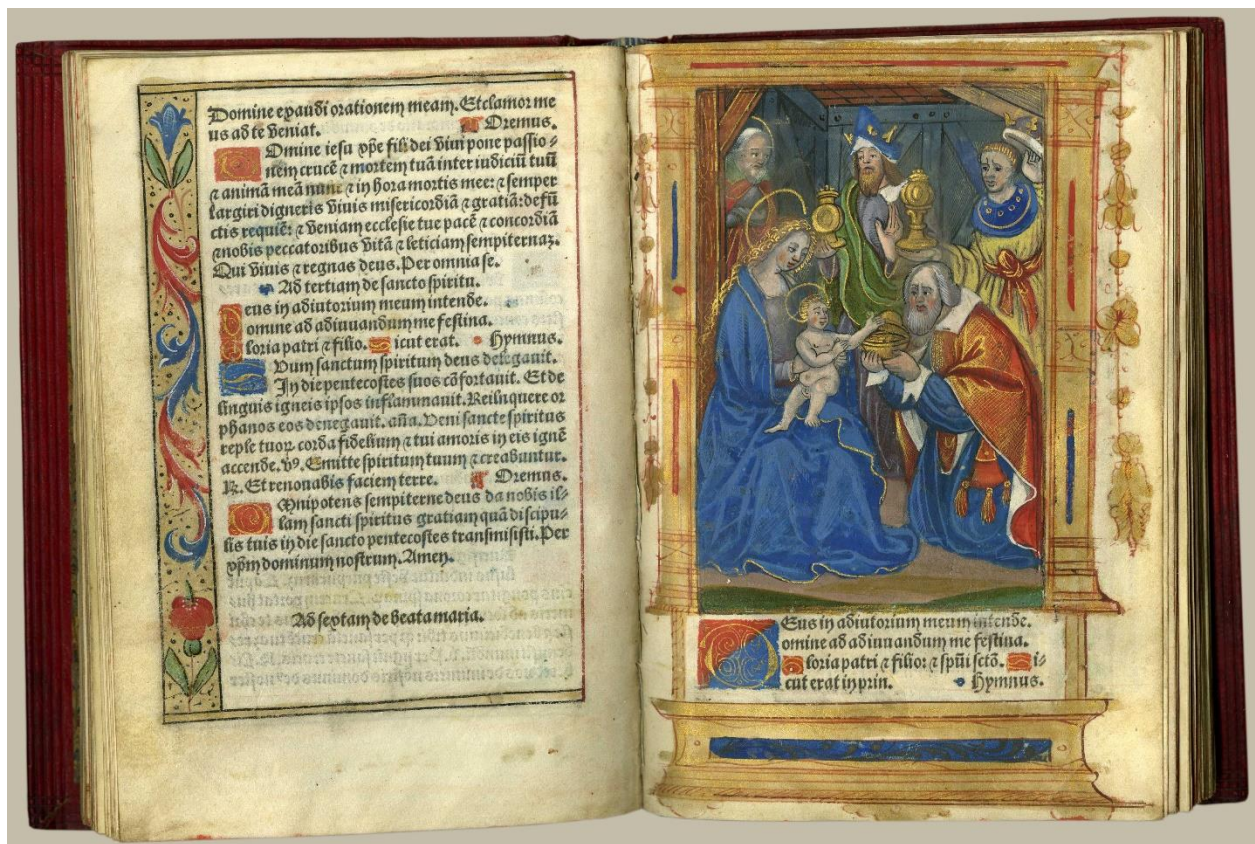 Domine exaudi orationem meam. Et clamor me
us ad te veniat. Oremus.
Domine iesu xp̄e fili dei vivi pone passio⸗
nem crucē ⁊ mortem tuā inter iudiciū tuū
⁊ animā meā nunc ⁊ in hora mortis mee: ⁊ semper
largiri digneris vivis misericordiā ⁊ gratiā: defū
ctis requiē: ⁊ veniam ecclesie tue pacē ⁊ concordiā
⁊ nobis peccatoribus vitā ⁊ leticiam sempiternaꝫ.
Qui vivis ⁊ regnas deus. Per omnia se.
Ad tertiam de sancto spiritu.
Deus in adiutorium meum intende.
Domine ad adiuuandum me festina.
Gloria patri ⁊ filio. Sicut erat. Hymnus.
Suum sanctum spiritum deus delegauit.
In die pentecostes suos cōfortauit. Et de
linguis igneis ipsos inflammauit. Relinquere or
phanos eos denegauit. aña. Veni sancte spiritus
reple tuoꝝ corda fidelium ⁊ tui amoris in eis ignē
accende. v̄9. Emitte spiritum tuum ⁊ creabuntur.
℟. Et renouabis faciem terre. Oremus.
Omnipotens sempiterne deus da nobis il⸗
lam sancti spiritus gratiam quā discipu⸗
lis tuis in die sancto pentecostes transmisisti. Per
xp̄m dominum nostrum. Amen.
Ad sextam de beata maria.
Deus in adiutorium meum intende.
Domine ad adiuuandum me festina.
Gloria patri ⁊ filio: ⁊ spūi sctō. Si⸗
cut erat in prin. Hymnus.